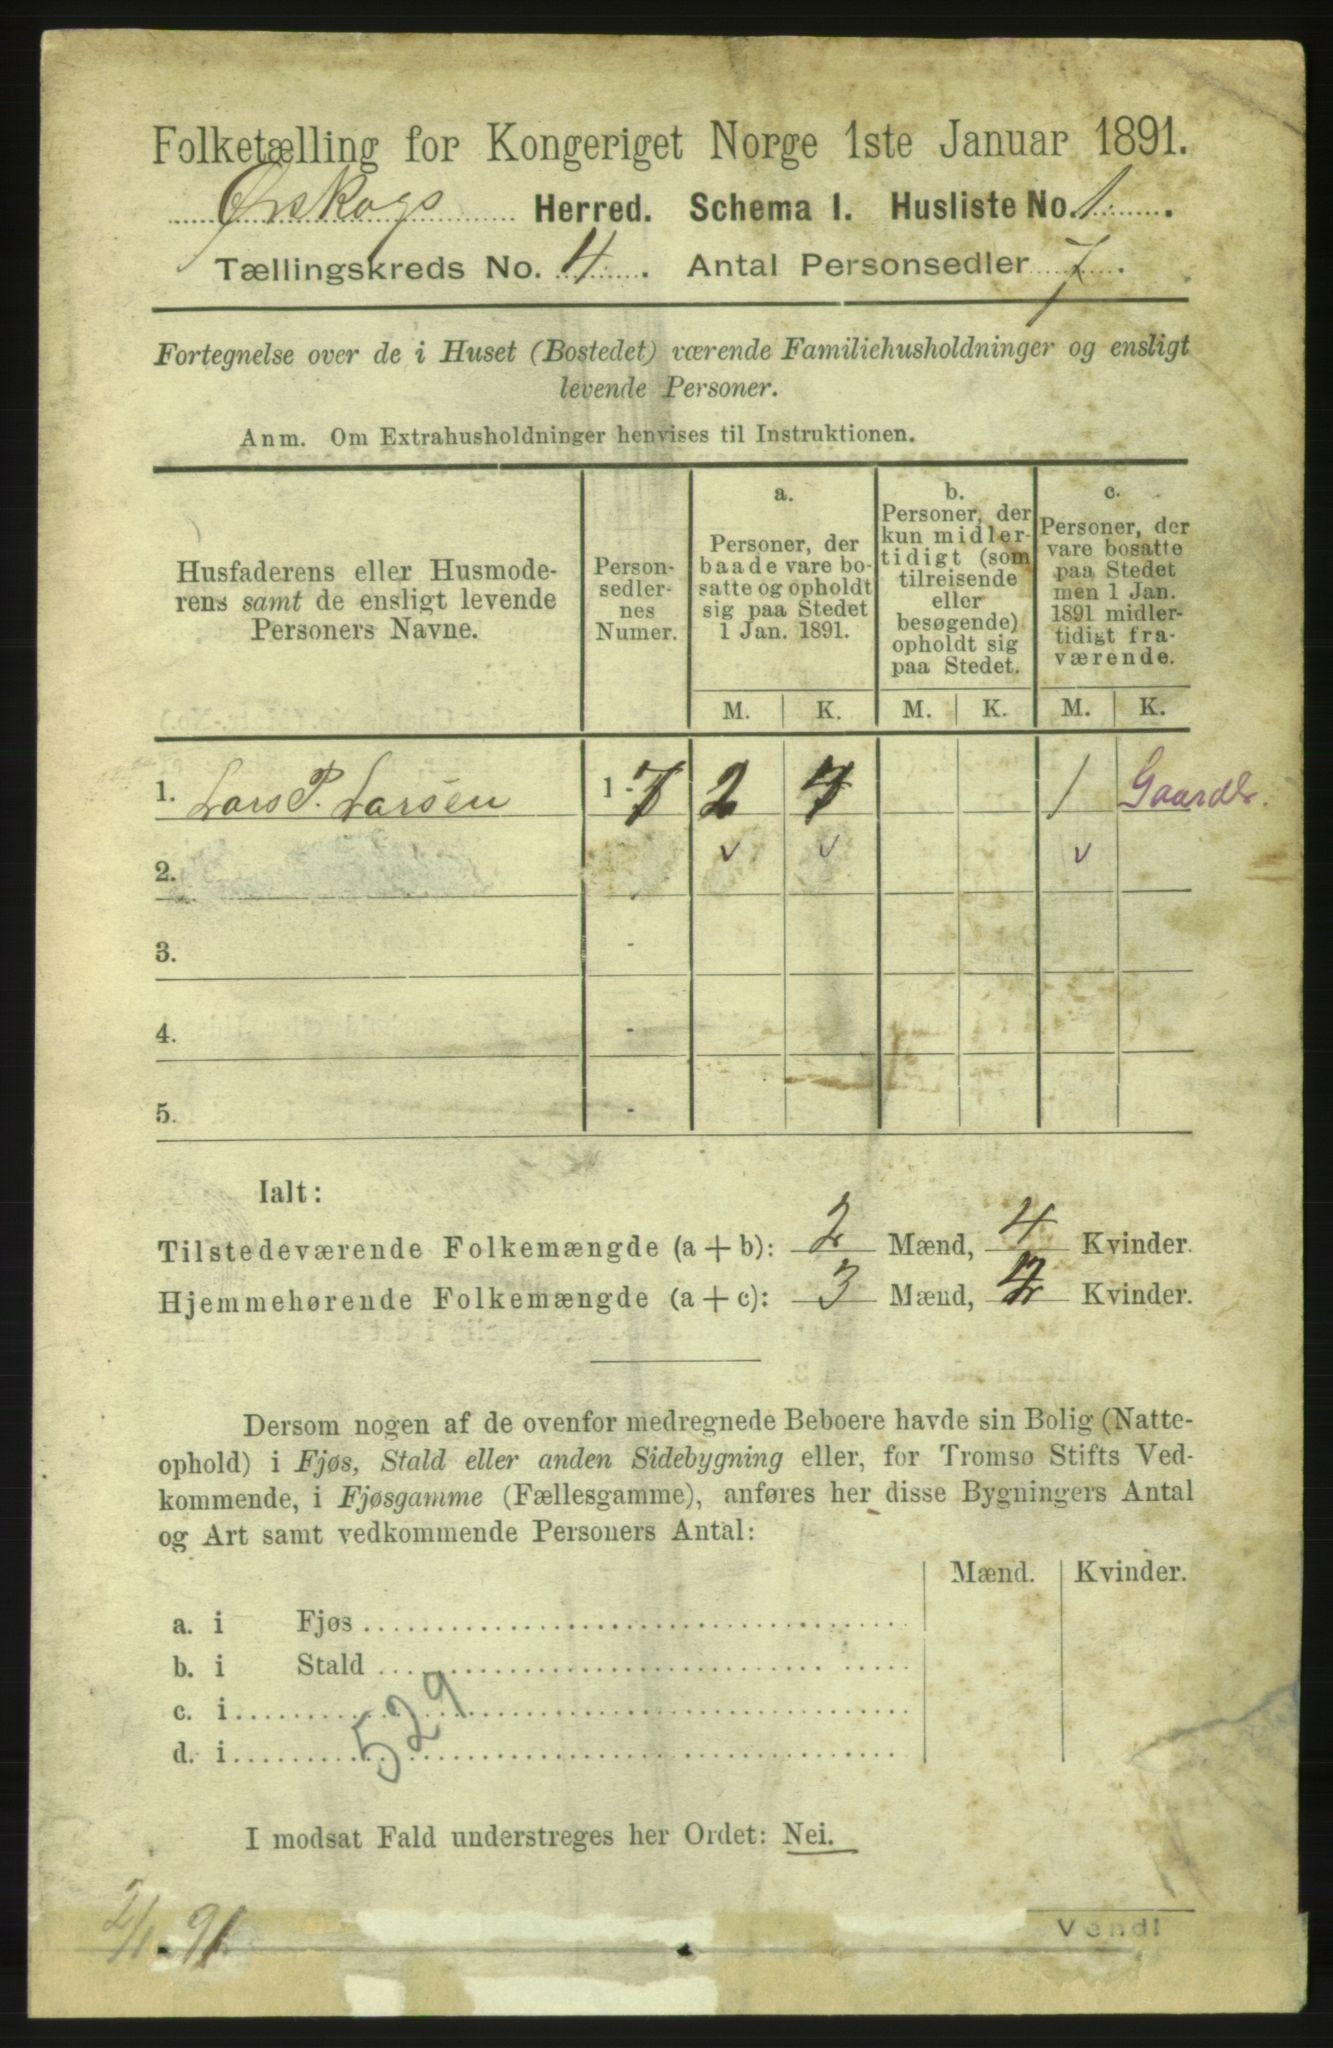 Folketælling for Kongeriget Norge 1ste Januar 1891.
Ørskogs Herred. Schema I. Husliste No. 1.
Tællingskreds No. 4. Antal Personsedler 7.
Fortegnelse over de i Huset (Bostedet) værende Familiehusholdninger og ensligt
levende Personer.
Anm. Om Extrahusholdninger henvises til Instruktionen.
Husfaderens eller Husmode-
rens samt de ensligt levende
Personers Navne.
Person-
sedler-
nes
Numer.
a.
Personer, der
baade vare bo-
satte og opholdt
sig paa Stedet
1 Jan. 1891.
b.
Personer, der
kun midler-
tidigt (som
tilreisende
eller
besøgende)
opholdt sig
paa Stedet.
c.
Personer, der
vare bosatte
paa Stedet
men 1 Jan.
1891 midler-
tidigt fra-
værende.
M. K. M. K. M. K.
1. Lars P. Larsen 1 - 7 2 4 1 Gaardbr.
2. -
3. -
4. -
5. -
Ialt:
Tilstedeværende Folkemængde (a + b): 2 Mænd, 4 Kvinder.
Hjemmehørende Folkemængde (a + c): 3 Mænd, 4 Kvinder.
Dersom nogen af de ovenfor medregnede Beboere havde sin Bolig (Natte-
ophold) i Fjøs, Stald eller anden Sidebygning eller, for Tromsø Stifts Ved-
kommende, i Fjøsgamme (Fællesgamme), anføres her disse Bygningers Antal
og Art samt vedkommende Personers Antal:
Mænd. Kvinder.
a. i Fjøs
b. i Stald
c. i
d. i
529
I modsat Fald understreges her Ordet: Nei.
2/1. 91
Vend!